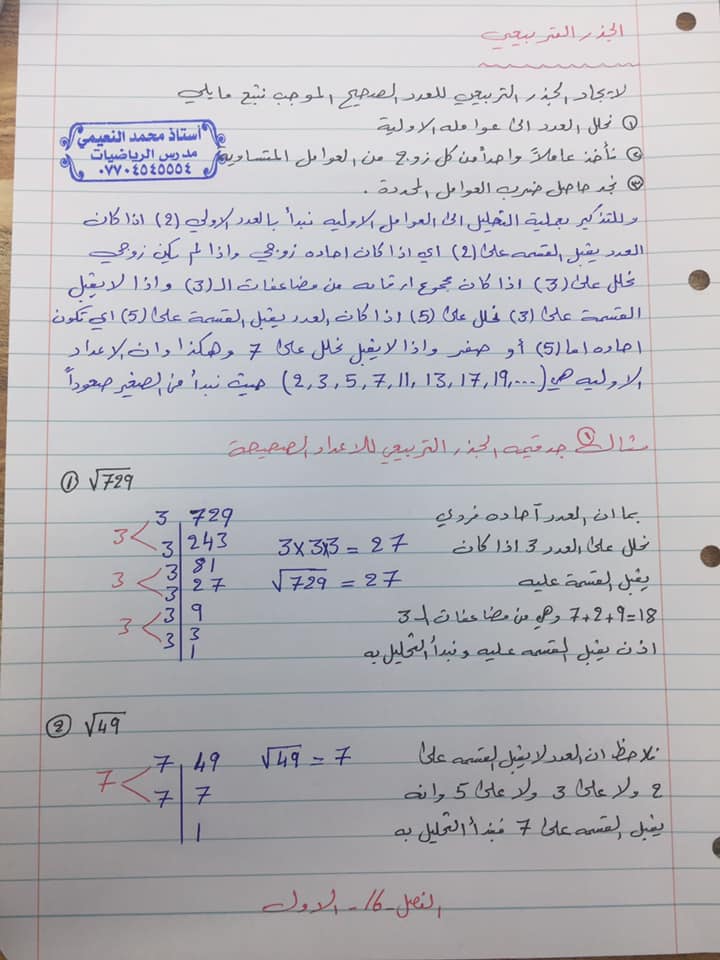 الجذر التربيعي
لايجاد الجذر التربيعي للعدد الصحيح الموجب نتبع مايلي
① نحلل العدد الى عوامله الاولية
② نأخذ عاملاً واحداً من كل زوج من العوامل المتساوية
③ نجد حاصل ضرب العوامل المحددة .
أستاذ محمد النعيمي
مدرس الرياضيات
٠٧٧٠٤٥٤٥٥٥٤
وللتذكير بعملية التحليل الى العوامل الاوليه نبدأ بالعدد الاولي (2) اذا كان
العدد يقبل القسمه على (2) اي اذا كان احاده زوجي واذا لم يكن زوجي
نحلل على (3) اذا كان مجموع ارقامه من مضاعفات الـ(3) واذا لايقبل
القسمة على (3) نحلل على (5) اذا كان العدد يقبل القسمة على (5) اي تكون
احاده اما (5) أو صفر واذا لايقبل نحلل على 7 وهكذا وان الاعداد
الاوليه هي (2, 3, 5, 7, 11, 13, 17, 19, ...) حيث نبدأ من الصغير صعوداً
مثال ① جد قيمه الجذر التربيعي للاعداد الصحيحة
① √729
بما ان العدد آحاده فردي
نحلل على العدد 3 اذا كان
يقبل القسمة عليه
7+2+9=18 وهي من مضاعفات الـ 3
اذن يقبل القسمه عليه ونبدأ التحليل به
3×3×3 = 27
√729 = 27
3 | 729
3 | 243
3 | 81
3 | 27
3 | 9
3 | 3
1
3
3
3
② √49
نلاحظ ان العدد لايقبل القسمه على
2 ولا على 3 ولا على 5 وانه
يقبل القسمه على 7 فنبدأ التحليل به
√49 = 7
7 | 49
7 | 7
1
7
الفصل -١٦- الاول